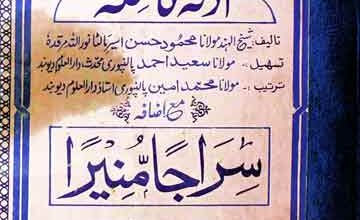 ادلۂ کاملہ
تالیف: شیخ الہند مولانا محمود حسن اسیر مالٹا نور اللہ مرقدہ
تسہیل: مولانا سعید احمد پالنپوری محدث دارالعلوم دیوبند
ترتیب: مولانا محمد امین پالنپوری استاذ دارالعلوم دیوبند
مع اضافہ
سِرَاجًا مُّنِیرًا